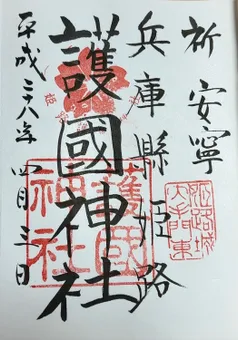 祈 安寧
兵庫縣姫路
護國神社
平成二八年 四月三日
姫路城
大手門東
護國
神社